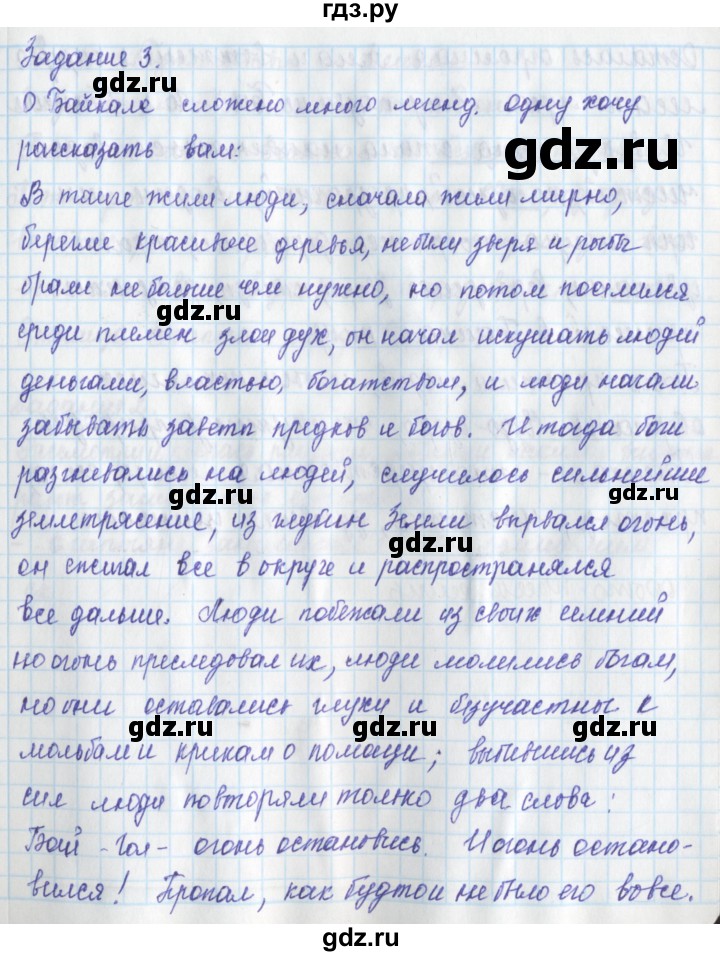 гдз.ру
Задание 3.
gdz.ru
О Байкале сложено много легенд. Одну хочу
gdz.ru
рассказать вам:
В тайге жили люди, сначала жили мирно,
берегли красивые деревья, не били зверя и рыбы
брали не более чем нужно, но потом поселился
gdz.ru gdz.ru
среди племен злой дух, он начал искушать людей
деньгами, властью, богатством, и люди начали
забывать заветы предков и богов. И тогда боги
разгневались на людей, случилось сильнейшие
gdz.ru gdz.ru
землетрясение, из глубин Земли вырвался огонь,
gdz.ru
он сжигал все в округе и распространялся
все дальше. Люди побежали из своих селений
но огонь преследовал их, люди молились богам,
но они оставались глухи и безучастны к
gdz.ru gdz.ru gdz.ru
мольбам и крикам о помощи; выбившись из
сил люди повторяли только два слова:
Бай - Гал - огонь остановись. И огонь остано-
gdz.ru
вился! Пропал, как будто и не было его вовсе.
gdz.ru